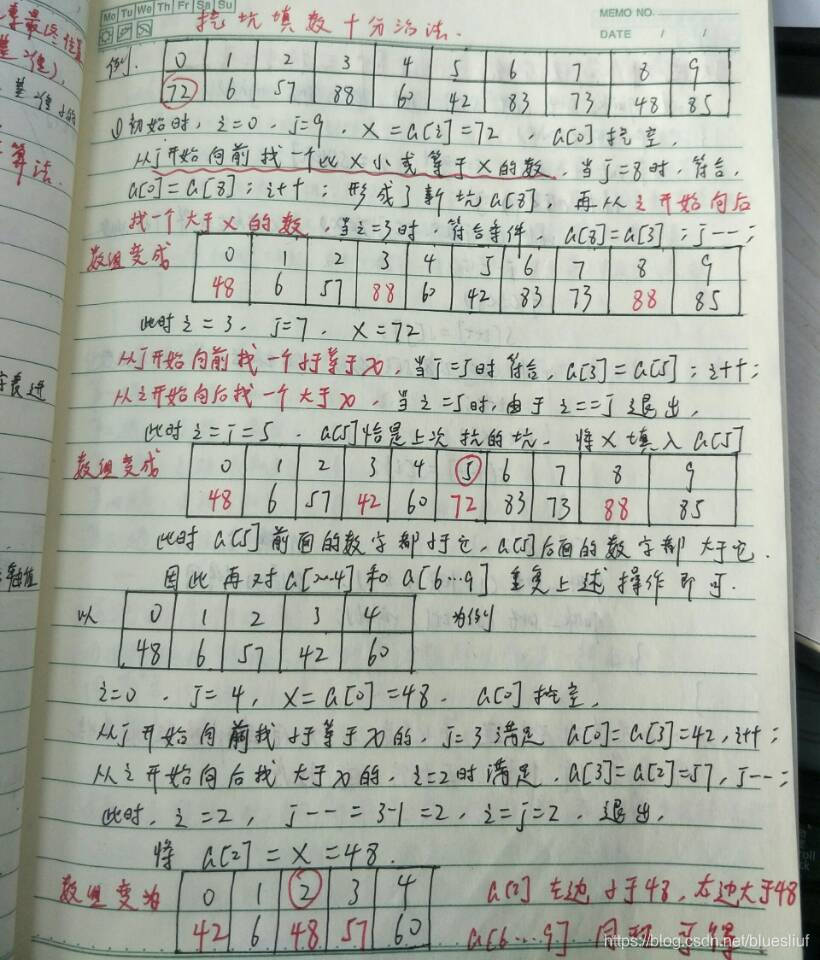 Mo Tu We Th Fr Sa Su
MEMO NO.
DATE / /
挖坑填数十分治法.
例.
0 1 2 3 4 5 6 7 8 9
72 6 57 88 60 42 83 73 48 85
①初始时, i=0. j=9. X=a[i]=72 . a[0]挖空,
从j开始向前找一个比X小或等于X的数, 当j=8时, 符合,
a[0]=a[8]; i++; 形成了新坑a[8], 再从i开始向后
找一个大于X的数, 当i=3时, 符合条件. a[8]=a[3]; j--;
数组变成
0 1 2 3 4 5 6 7 8 9
48 6 57 88 60 42 83 73 88 85
此时 i=3. j=7. X=72
从j开始向前找一个小于等于x, 当j=5时符合, a[3]=a[5]; i++;
从i开始向后找一个大于x, 当i=5时, 由于i==j退出,
此时 i=j=5. a[5]恰是上次挖的坑. 将X填入a[5]
数组变成
0 1 2 3 4 5 6 7 8 9
48 6 57 42 60 72 83 73 88 85
此时a[5]前面的数字都小于它, a[5]后面的数字都大于它.
因此再对a[0…4]和a[6…9]重复上述操作即可.
以
0 1 2 3 4
48 6 57 42 60
为例
i=0. j=4, X=a[0]=48. a[0]挖空,
从j开始向前找小于等于x的, j=3满足 a[0]=a[3]=42, i++;
从i开始向后找大于x的, i=2时满足, a[3]=a[2]=57, j--;
此时, i=2, j--=3-1=2, i=j=2. 退出,
将 a[2]=X=48.
数组变为
0 1 2 3 4
42 6 48 57 60
a[2]左边小于48, 右边大于48
a[6…9]
https://blog.csdn.net/bluesliuf
算法.